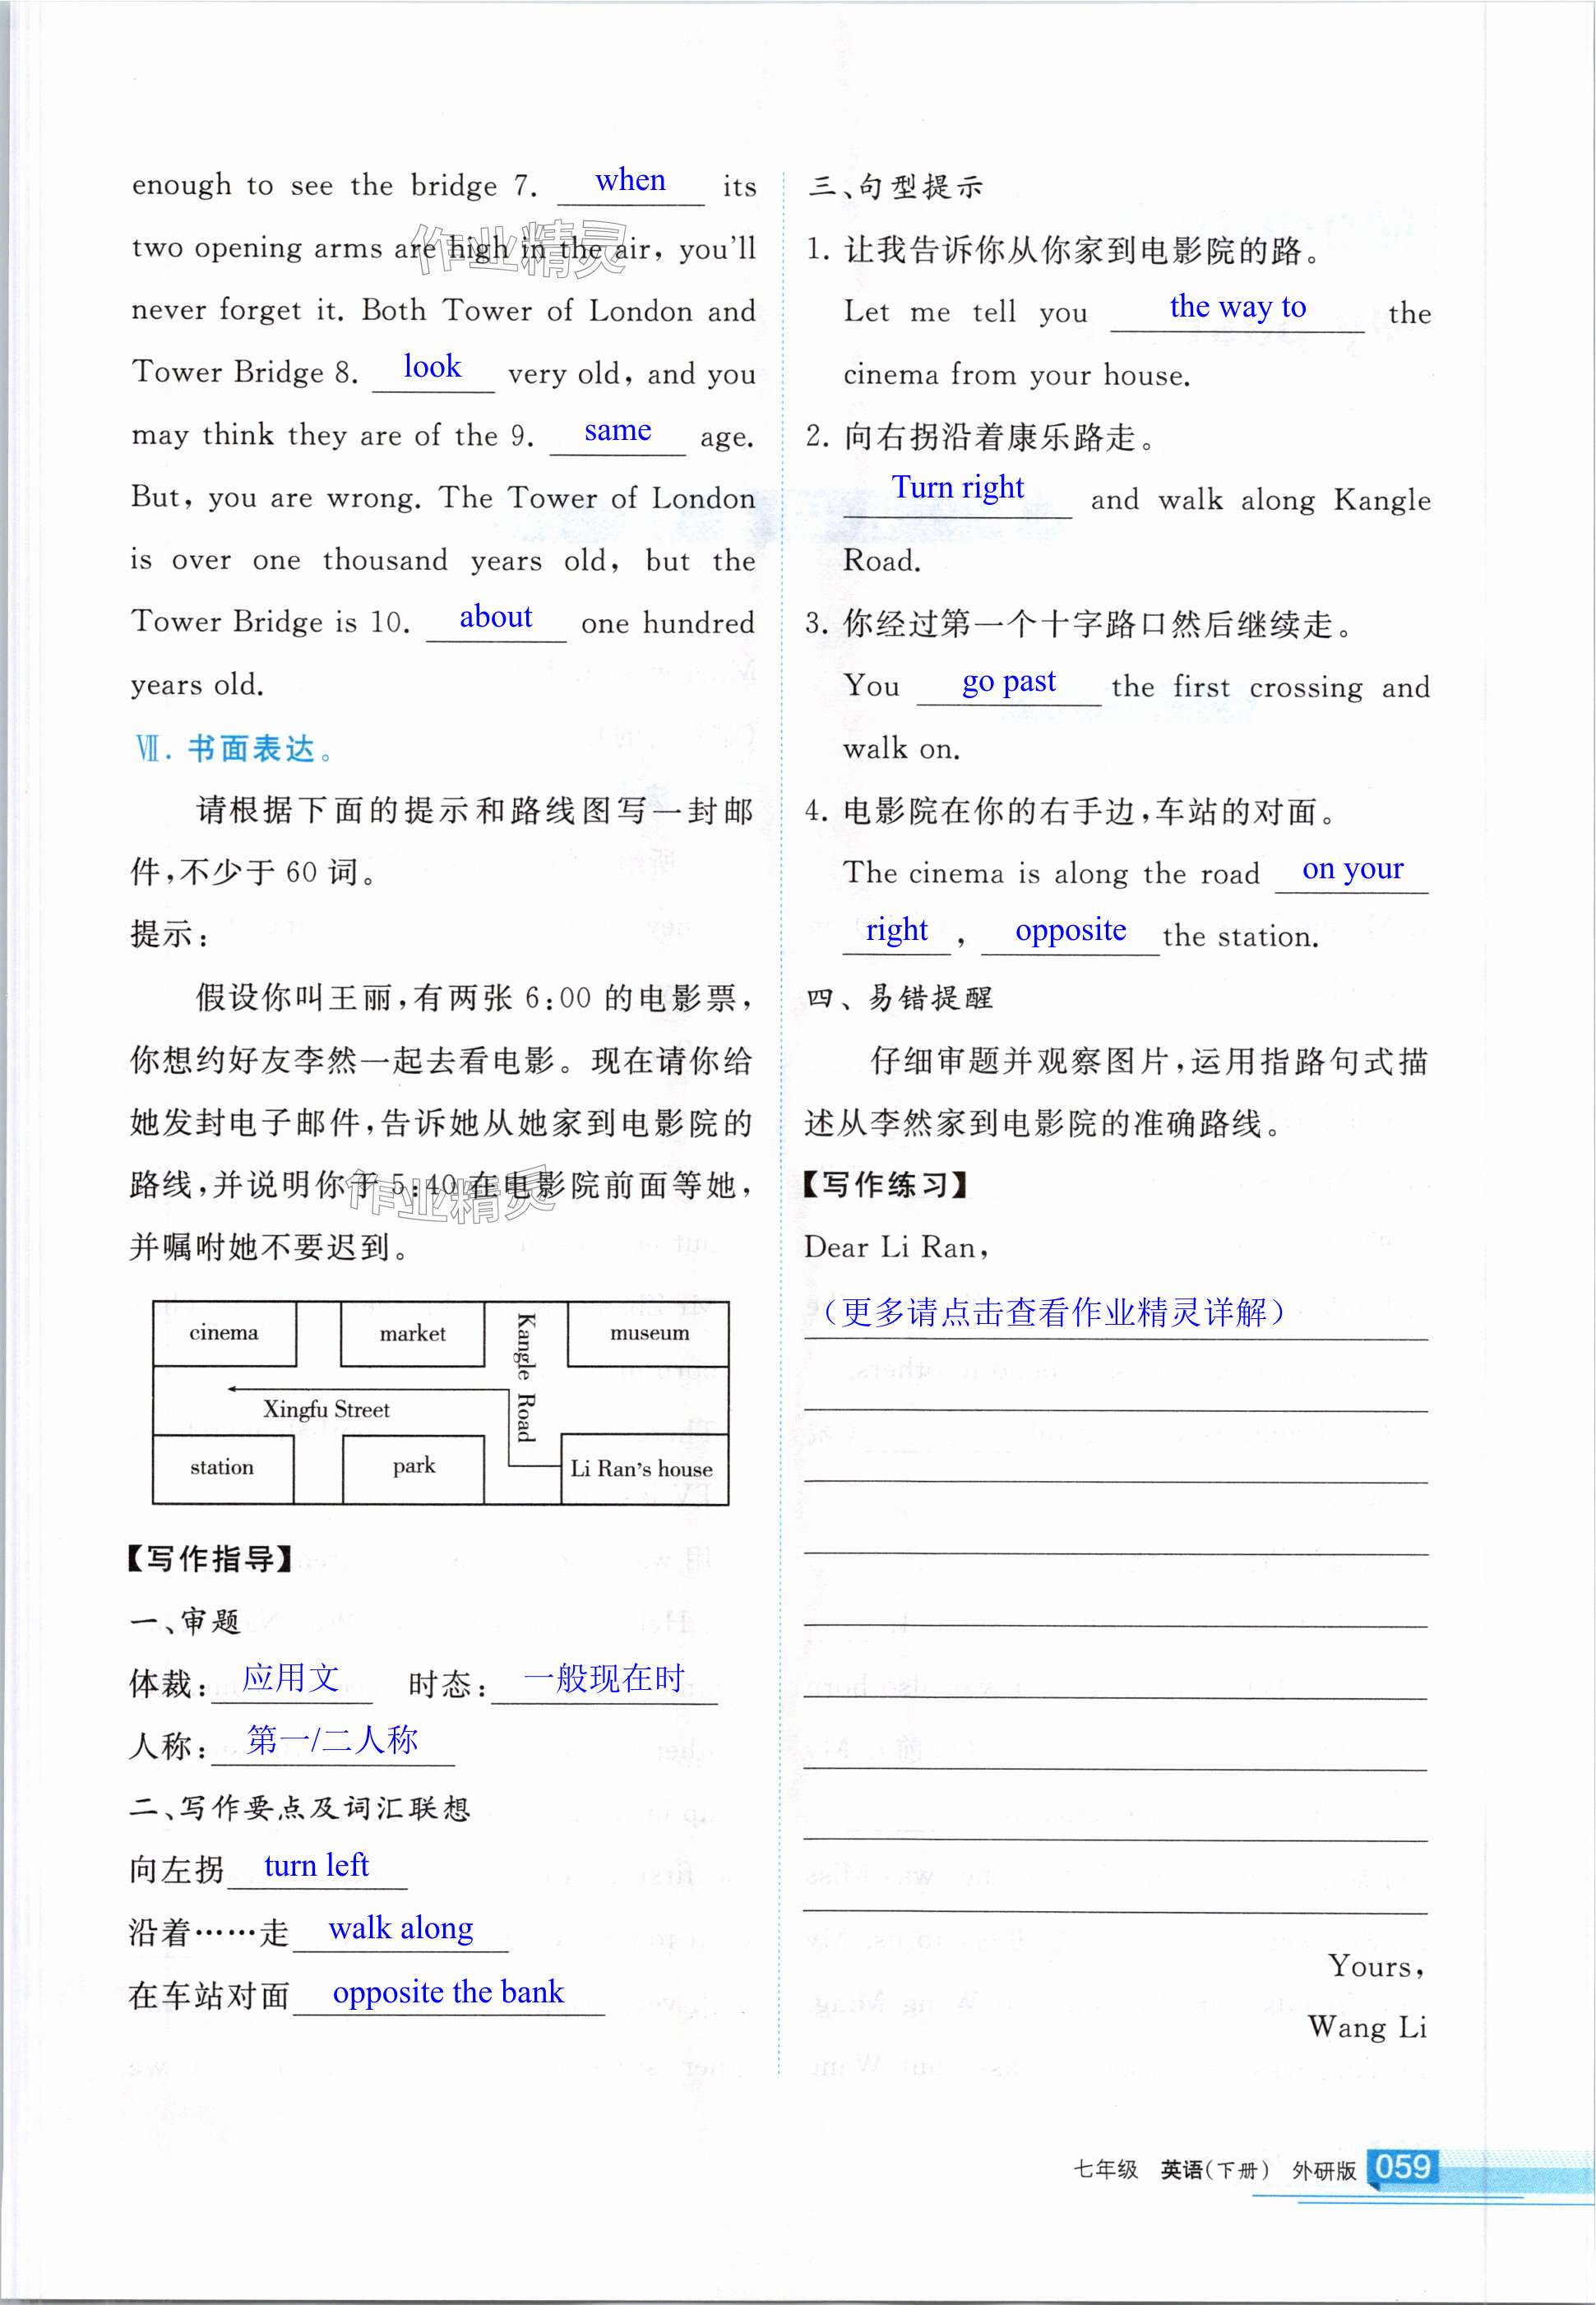 enough to see the bridge 7. when its
two opening arms are high in the air, you'll
never forget it. Both Tower of London and
Tower Bridge 8. look very old, and you
may think they are of the 9. same age.
But, you are wrong. The Tower of London
is over one thousand years old, but the
Tower Bridge is 10. about one hundred
years old.
Ⅶ. 书面表达。
请根据下面的提示和路线图写一封邮
件,不少于 60 词。
提示:
假设你叫王丽,有两张 6:00 的电影票,
你想约好友李然一起去看电影。现在请你给
她发封电子邮件,告诉她从她家到电影院的
路线,并说明你于 5:40 在电影院前面等她,
并嘱咐她不要迟到。
cinema market Kangle Road museum
Xingfu Street
station park Li Ran's house
【写作指导】
一、审题
体裁: 应用文 时态: 一般现在时
人称: 第一/二人称
二、写作要点及词汇联想
向左拐 turn left
沿着……走 walk along
在车站对面 opposite the bank
三、句型提示
1. 让我告诉你从你家到电影院的路。
Let me tell you the way to the
cinema from your house.
2. 向右拐沿着康乐路走。
Turn right and walk along Kangle
Road.
3. 你经过第一个十字路口然后继续走。
You go past the first crossing and
walk on.
4. 电影院在你的右手边,车站的对面。
The cinema is along the road on your
right , opposite the station.
四、易错提醒
仔细审题并观察图片,运用指路句式描
述从李然家到电影院的准确路线。
【写作练习】
Dear Li Ran,
(更多请点击查看作业精灵详解)
Yours,
Wang Li
七年级 英语(下册) 外研版 059
作业精灵
作业精灵